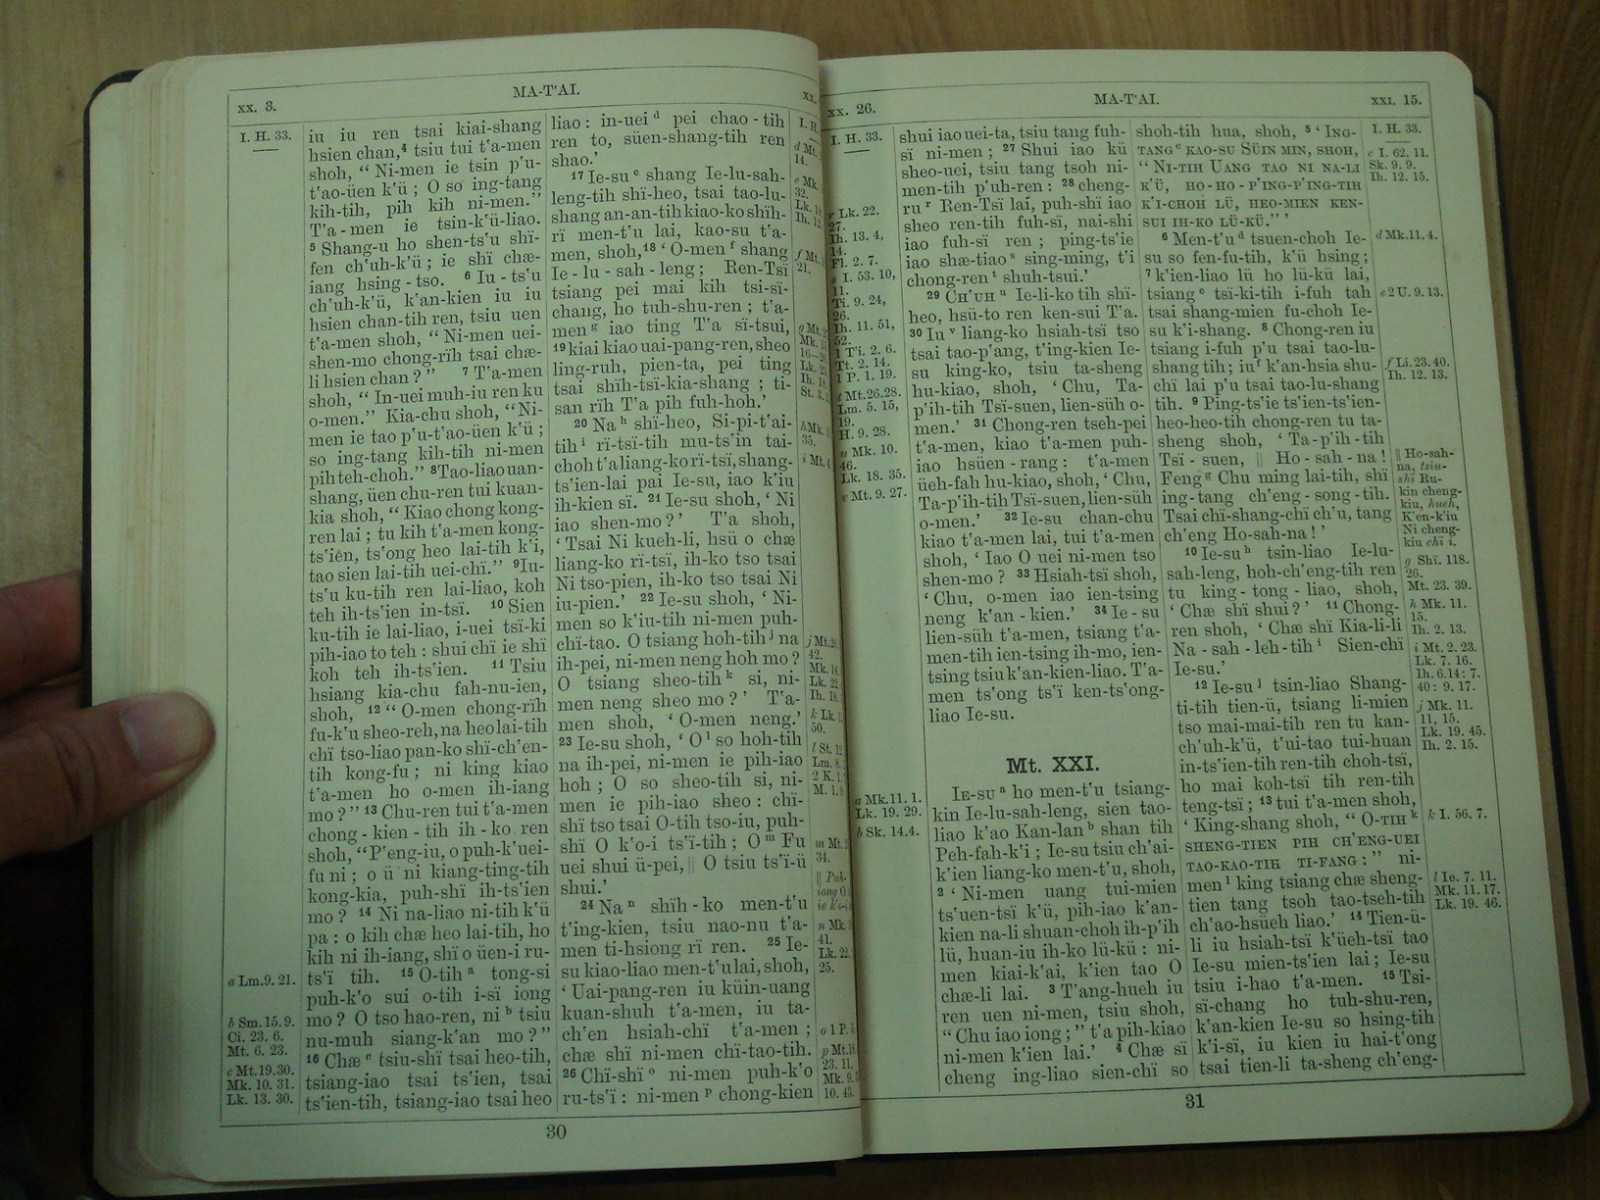 xx. 3.
MA-T'AI.
xx.
I. H. 33.
iu iu ren tsai kiai-shang
hsien chan,⁴ tsiu tui t'a-men
shoh, “ Ni-men ie tsin p'u-
t'ao-üen k'ü ; O so ing-tang
kih-tih, pih kih ni-men.”
T'a-men ie tsin-k'ü-liao.
⁵ Shang-u ho shen-ts'u shï-
fen ch'uh-k'ü ; ie shï chæ-
iang hsing-tso. ⁶ Iu-ts'u
ch'uh-k'ü, k'an-kien iu iu
hsien chan-tih ren, tsiu uen
t'a-men shoh, “ Ni-men uei-
shen-mo chong-rïh tsai chæ-
li hsien chan ? ” ⁷ T'a-men
shoh, “ In-uei muh-iu ren ku
o-men.” Kia-chu shoh, “Ni-
men ie tao p'u-t'ao-üen k'ü ;
so ing-tang kih-tih ni-men
pih teh-choh.” ⁸Tao-liao uan-
shang, üen chu-ren tui kuan-
kia shoh, “ Kiao chong kong-
ren lai ; tu kih t'a-men kong-
ts'ien, ts'ong heo lai-tih k'i,
tao sien lai-tih uei-chï.” ⁹Iu-
ts'u ku-tih ren lai-liao, koh
teh ih-ts'ien in-tsï. ¹⁰ Sien
ku-tih ie lai-liao, i-uei tsï-ki
pih-iao to teh : shui chï ie shï
koh teh ih-ts'ien. ¹¹ Tsiu
hsiang kia-chu fah-nu-ien,
shoh, ¹² “ O-men chong-rïh
fu-k'u sheo-reh, na heo lai-tih
chï tso-liao pan-ko shï-ch'en-
tih kong-fu ; ni king kiao
t'a-men ho o-men ih-iang
mo ? ” ¹³ Chu-ren tui t'a-men
chong-kien-tih ih-ko ren
shoh, “P'eng-iu, o puh-k'uei-
fu ni ; o ü ni kiang-ting-tih
kong-kia, puh-shï ih-ts'ien
mo ? ¹⁴ Ni na-liao ni-tih k'ü
pa : o kih chæ heo lai-tih, ho
kih ni ih-iang, shï o üen-i ru-
ts'ï tih. ¹⁵ O-tih ᵃ tong-si
puh-k'o sui o-tih i-sï iong
mo ? O tso hao-ren, ni ᵇ tsiu
nu-muh siang-k'an mo ? ”
¹⁶ Chæ ᶜ tsiu-shï tsai heo-tih,
tsiang-iao tsai ts'ien, tsai
ts'ien-tih, tsiang-iao tsai heo
a Lm. 9. 21.
b Sm. 15. 9.
Ci. 23. 6.
Mt. 6. 23.
c Mt. 19. 30.
Mk. 10. 31.
Lk. 13. 30.
liao : in-uei ᵈ pei chao-tih
ren to, süen-shang-tih ren
shao.’
¹⁷ Ie-su ᵉ shang Ie-lu-sah-
leng-tih shï-heo, tsai tao-lu-
shang an-an-tih kiao-ko shïh-
rï men-t'u lai, kao-su t'a-
men, shoh, ¹⁸ ‘ O-men ᶠ shang
Ie-lu-sah-leng ; Ren-Tsï
tsiang pei mai kih tsi-sï-
chang, ho tuh-shu-ren ; t'a-
men ᵍ iao ting T'a sï-tsui,
¹⁹ kiai kiao uai-pang-ren, sheo
ling-ruh, pien-ta, pei ting
tsai shïh-tsï-kia-shang ; ti-
san rïh T'a pih fuh-hoh.’
²⁰ Na ʰ shï-heo, Si-pi-t'ai-
tih ⁱ rï-tsï-tih mu-ts'in tai-
choh t'a liang-ko rï-tsï, shang-
ts'ien-lai pai Ie-su, iao k'iu
ih-kien sï. ²¹ Ie-su shoh, ‘ Ni
iao shen-mo ? ’ T'a shoh,
‘ Tsai Ni kueh-li, hsü o chæ
liang-ko rï-tsï, ih-ko tso tsai
Ni tso-pien, ih-ko tso tsai Ni
iu-pien.’ ²² Ie-su shoh, ‘ Ni-
men so k'iu-tih ni-men puh-
chï-tao. O tsiang hoh-tih ʲ na
ih-pei, ni-men neng hoh mo ?
O tsiang sheo-tih ᵏ si, ni-
men neng sheo mo ? ’ T'a-
men shoh, ‘ O-men neng.’
²³ Ie-su shoh, ‘ O ˡ so hoh-tih
na ih-pei, ni-men ie pih-iao
hoh ; O so sheo-tih si, ni-
men ie pih-iao sheo : chï-
shï tso tsai O-tih tso-iu, puh-
shï O k'o-i ts'ï-tih ; O ᵐ Fu
uei shui ü-pei, || O tsiu ts'ï-ü
shui.’
²⁴ Na ⁿ shïh-ko men-t'u
t'ing-kien, tsiu nao-nu t'a-
men ti-hsiong rï ren. ²⁵ Ie-
su kiao-liao men-t'u lai, shoh,
‘ Uai-pang-ren iu küin-uang
kuan-shuh t'a-men, iu ta-
ch'en hsiah-chï t'a-men ;
chæ shï ni-men chï-tao-tih.
²⁶ Chï-shï ᵒ ni-men puh-k'o
ru-ts'ï : ni-men ᵖ chong-kien
30
xx. 26.
MA-T'AI.
XXI. 15.
I. H. 33.
r Lk. 22.
27.
Ih. 13. 4,
14.
Fl. 2. 7.
s I. 53. 10,
11.
Ti. 9. 24,
26.
Ih. 11. 51,
52.
1 T'i. 2. 6.
Tt. 2. 14.
1 P. 1. 19.
t Mt. 26. 28.
Lm. 5. 15,
19.
H. 9. 28.
u Mk. 10.
46.
Lk. 18. 35.
v Mt. 9. 27.
a Mk. 11. 1.
Lk. 19. 29.
b Sk. 14. 4.
shui iao uei-ta, tsiu tang fuh-
sï ni-men ; ²⁷ Shui iao kü
sheo-uei, tsiu tang tsoh ni-
men-tih p'uh-ren : ²⁸ cheng-
ru ʳ Ren-Tsï lai, puh-shï iao
sheo ren-tih fuh-sï, nai-shi
iao fuh-sï ren ; ping-ts'ie
iao shæ-tiao ˢ sing-ming, t'i
chong-ren ᵗ shuh-tsui.’
²⁹ CH'UH ᵘ Ie-li-ko tih shï-
heo, hsü-to ren ken-sui T'a.
³⁰ Iu ᵛ liang-ko hsiah-tsï tso
tsai tao-p'ang, t'ing-kien Ie-
su king-ko, tsiu ta-sheng
hu-kiao, shoh, ‘ Chu, Ta-
p'ih-tih Tsï-suen, lien-süh o-
men.’ ³¹ Chong-ren tseh-pei
t'a-men, kiao t'a-men puh-
iao hsüen-rang : t'a-men
üeh-fah hu-kiao, shoh, ‘ Chu,
Ta-p'ih-tih Tsï-suen, lien-süh
o-men.’ ³² Ie-su chan-chu
kiao t'a-men lai, tui t'a-men
shoh, ‘ Iao O uei ni-men tso
shen-mo ? ³³ Hsiah-tsï shoh,
‘ Chu, o-men iao ien-tsing
neng k'an-kien.’ ³⁴ Ie-su
lien-süh t'a-men, tsiang t'a-
men-tih ien-tsing ih-mo, ien-
tsing tsiu k'an-kien-liao. T'a-
men ts'ong ts'ï ken-ts'ong-
liao Ie-su.
Mt. XXI.
IE-SU ᵃ ho men-t'u tsiang-
kin Ie-lu-sah-leng, sien tao-
liao k'ao Kan-lan ᵇ shan tih
Peh-fah-k'i ; Ie-su tsiu ch'ai-
k'ien liang-ko men-t'u, shoh,
² ‘ Ni-men uang tui-mien
ts'uen-tsï k'ü, pih-iao k'an-
kien na-li shuan-choh ih-p'ih
lü, huan-iu ih-ko lü-kü : ni-
men kiai-k'ai, k'ien tao O
chæ-li lai. ³ T'ang-hueh iu
ren uen ni-men, tsiu shoh,
“ Chu iao iong ; ” t'a pih-kiao
ni-men k'ien lai.’ ⁴ Chæ sï
cheng ing-liao sien-chï so
shoh-tih hua, shoh, ⁵ ‘ ING-
TANG ᶜ KAO-SU SÜIN MIN, SHOH,
“ NI-TIH UANG TAO NI NA-LI
K'Ü, HO-HO-P'ING-P'ING-TIH
K'I-CHOH LÜ, HEO-MIEN KEN-
SUI IH-KO LÜ-KÜ.” ’
⁶ Men-t'u ᵈ tsuen-choh Ie-
su so fen-fu-tih, k'ü hsing ;
⁷ k'ien-liao lü ho lü-kü lai,
tsiang ᵉ tsï-ki-tih i-fuh tah
tsai shang-mien fu-choh Ie-
su k'i-shang. ⁸ Chong-ren iu
tsiang i-fuh p'u tsai tao-lu-
shang tih ; iu ᶠ k'an-hsia shu-
chï lai p'u tsai tao-lu-shang
tih. ⁹ Ping-ts'ie ts'ien-ts'ien-
heo-heo-tih chong-ren tu ta-
sheng shoh, ‘ Ta-p'ih-tih
Tsï-suen, || Ho-sah-na !
Feng ᵍ Chu ming lai-tih, shï
ing-tang ch'eng-song-tih.
Tsai chï-shang-chï ch'u, tang
ch'eng Ho-sah-na ! ’
¹⁰ Ie-su ʰ tsin-liao Ie-lu-
sah-leng, hoh-ch'eng-tih ren
tu king-tong-liao, shoh,
‘ Chæ shï shui ? ’ ¹¹ Chong-
ren shoh, ‘ Chæ shï Kia-li-li
Na-sah-leh-tih ⁱ Sien-chï
Ie-su.’
¹² Ie-su ʲ tsin-liao Shang-
ti-tih tien-ü, tsiang li-mien
tso mai-mai-tih ren tu kan-
ch'uh-k'ü, t'ui-tao tui-huan
in-ts'ien-tih ren-tih choh-tsï,
ho mai koh-tsï tih ren-tih
teng-tsï ; ¹³ tui t'a-men shoh,
‘ King-shang shoh, “ O-TIH ᵏ
SHENG-TIEN PIH CH'ENG-UEI
TAO-KAO-TIH TI-FANG : ” ni-
men ˡ king tsiang chæ sheng-
tien tang tsoh tao-tseh-tih
ch'ao-hsüeh liao.’ ¹⁴ Tien-ü-
li iu hsiah-tsï k'üeh-tsï tao
Ie-su mien-ts'ien lai ; Ie-su
tsiu i-hao t'a-men. ¹⁵ Tsi-
sï-chang ho tuh-shu-ren,
k'an-kien Ie-su so hsing-tih
k'i-sï, iu kien iu hai-t'ong
tsai tien-li ta-sheng ch'eng-
I. H. 33.
c I. 62. 11.
Sk. 9. 9.
Ih. 12. 15.
d Mk. 11. 4.
e 2 U. 9. 13.
f Li. 23. 40.
Ih. 12. 13.
|| Ho-sah-
na, tsiu-
shï Ru-
kin cheng-
kiu, hueh,
K'en-k'iu
Ni cheng-
kiu chï i.
g Shï. 118.
26.
Mt. 23. 39.
h Mk. 11.
15.
Ih. 2. 13.
i Mt. 2. 23.
Lk. 7. 16.
Ih. 6. 14 : 7.
40 : 9. 17.
j Mk. 11.
11, 15.
Lk. 19. 45.
Ih. 2. 15.
k I. 56. 7.
l Ie. 7. 11.
Mk. 11. 17.
Lk. 19. 46.
31